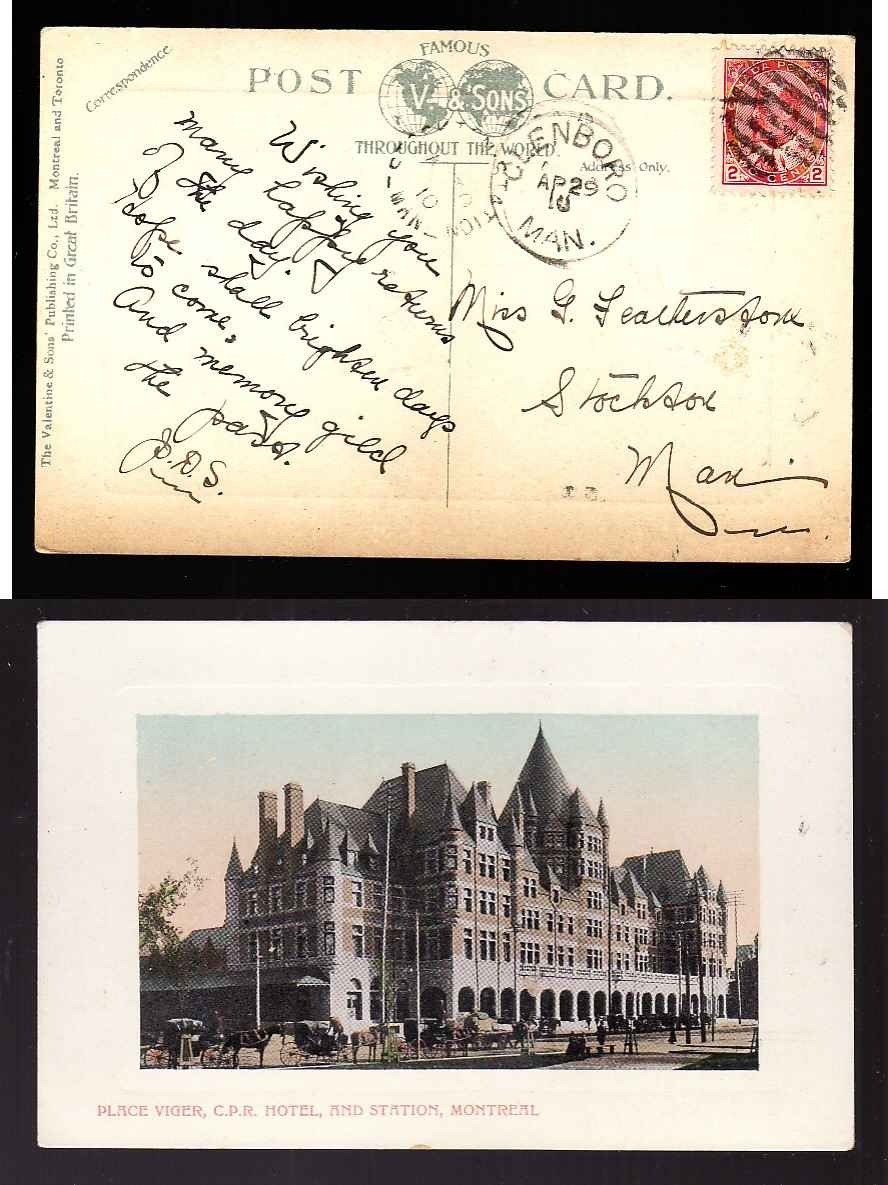 The Valentine & Sons' Publishing Co., Ltd. Montreal and Toronto
Printed in Great Britain.
Correspondence
FAMOUS
POST CARD.
V. & SONS
THROUGHOUT THE WORLD.
Address Only.
CANADA POSTAGE
2 CENTS 2
GLENBORO
AP 29
10
MAN.
STOCKTON
10
MAN
Wishing you
many happy returns
of the day.
Hope shall brighten days
to come,
And memory gild
the past.
B.D.S.
Miss G. Featherstone
Stockton
Man
PLACE VIGER, C.P.R. HOTEL, AND STATION, MONTREAL